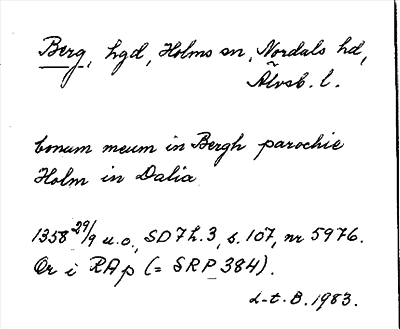 Berg, hgd, Holms sn, Nordals hd,
Älvsb. l.
bonum meum in Bergh parochie
Holm in Dalia
1358 29/9 u.o., SD 7 h. 3, s. 107, nr 5976.
Or i RAp (= SRP 384).
L-t. B. 1983.